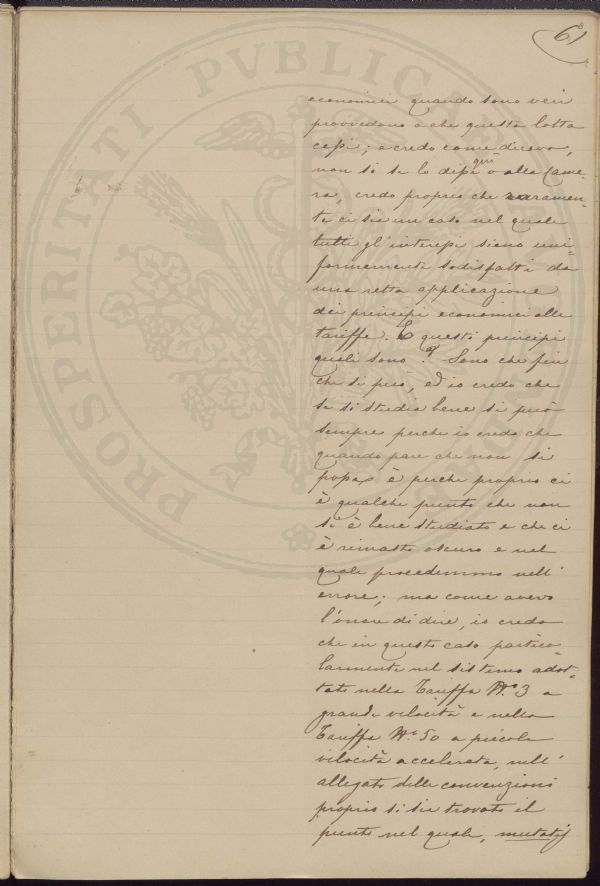 61
PROSPERITATI PVBLICAE
economici quando sono veri
provvedono a che questa lotta
cessi; e credo come dicevo,
non so se lo dissi qui o alla Came-
ra, credo proprio che raramen-
te ci sia un caso nel quale
tutti gl'interessi sieno uni-
formemente sodisfatti da
una retta applicazione
dei principi economici alle
tariffe. E questi principi
quali sono? Sono che fin
che si può, ed io credo che
se si studia bene si può
sempre perché io credo che
quando pare che non si
possa è perché proprio ci
è qualche punto che non
si è bene studiato e che ci
è rimasto oscuro e nel
quale procederemmo nell'
errore; ma come avevo
l'onore di dire, io credo
che in questo caso partico-
larmente nel sistema adot-
tato nella Tariffa N.º 3 a
grande velocità e nella
Tariffa N.º 50 a piccola
velocità accelerata, nell'
allegato delle convenzioni
proprio si sia trovato il
punto nel quale, mutatis